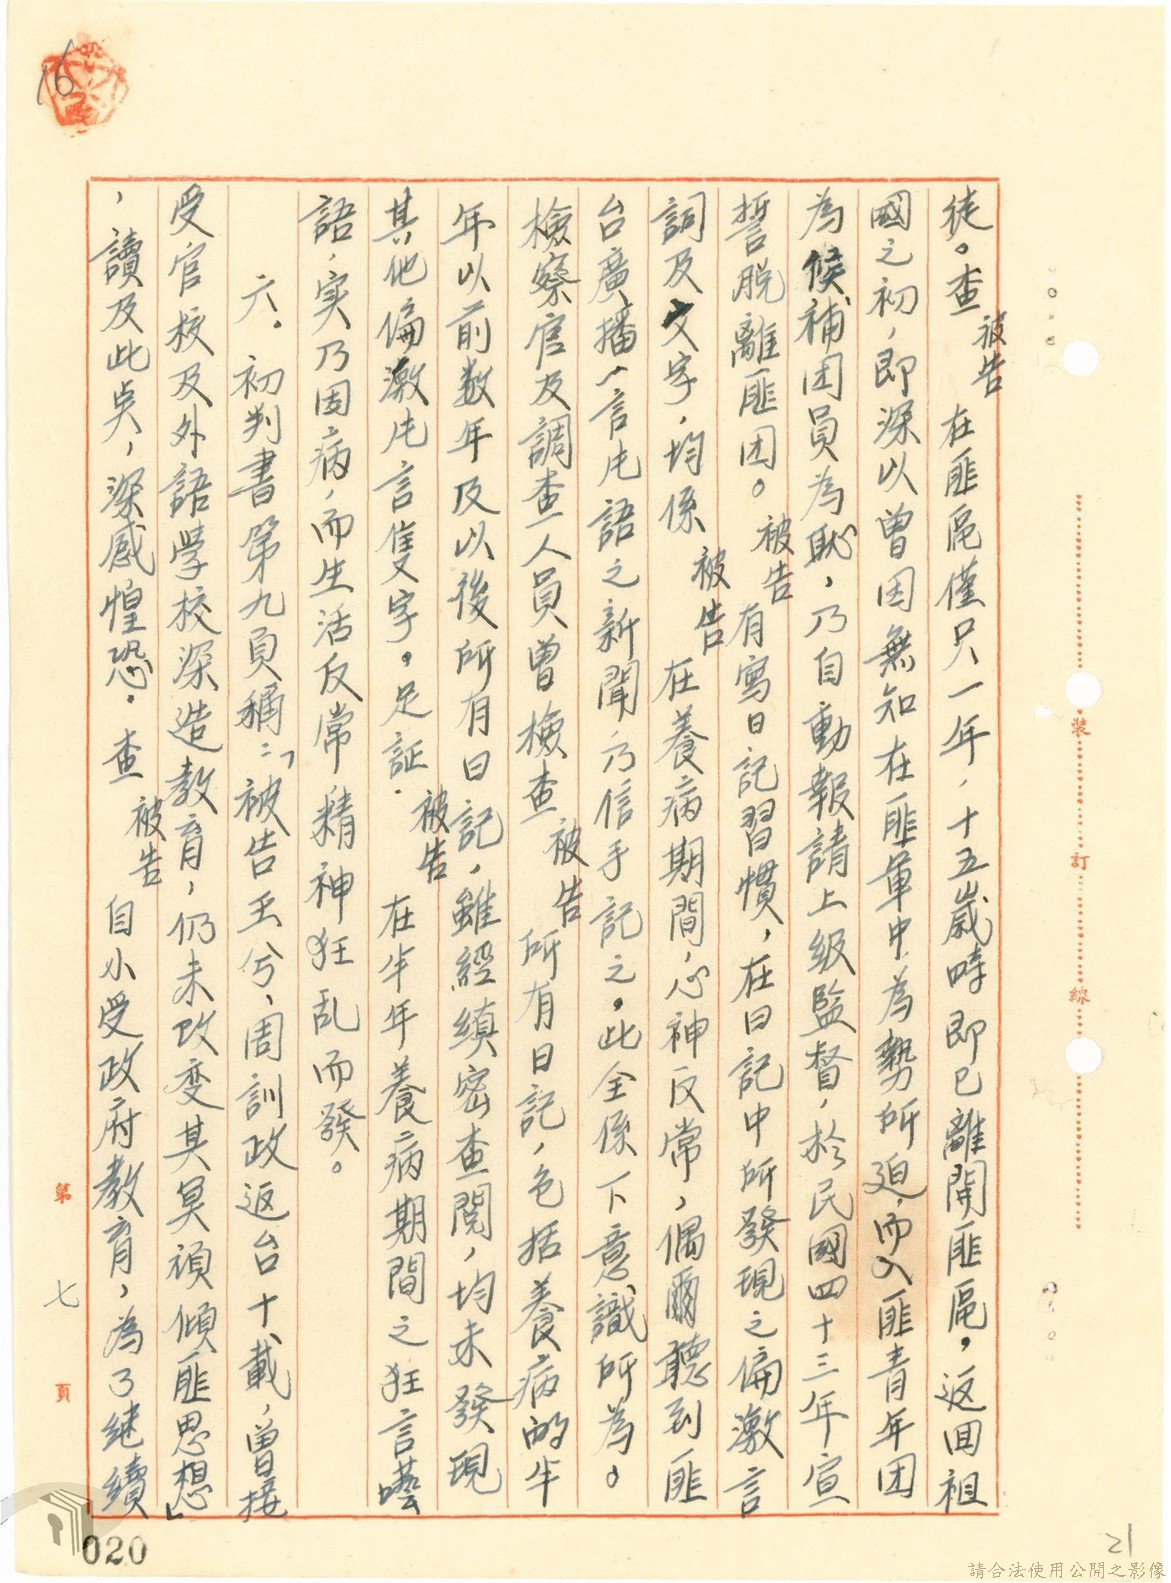 16
徒。查被告在匪區僅只一年，十五歲時即已離開匪區，返回祖
國之初，即深以曾因無知在匪軍中為勢所迫，而入匪青年团
為候補团員為恥，乃自動報請上級監督，於民國四十三年宣
誓脱離匪团。被告有寫日記習慣，在日記中所發現之偏激言
詞及文字，均係被告在養病期間，心神反常，偶爾聽到匪
台廣播一言片語之新聞，乃信手記之。此全係下意識所為。
檢察官及調查人員曾檢查被告所有日記，包括養病的半
年以前数年及以後所有日記，雖經縝密查閱，均未發現
其他偏激片言隻字。足証，被告在半年養病期間之狂言囈
語，实乃因病，而生活反常精神狂乱而發。
六。初判書第九頁稱：「被告王兮、周訓政返台十載，曾接
受官校及外語學校深造教育，仍未改变其冥頑傾匪思想」
，讀及此點，深感惶恐。查被告自小受政府教育，為了继續
裝
訂
線
第七頁
020
21
請合法使用公開之影像